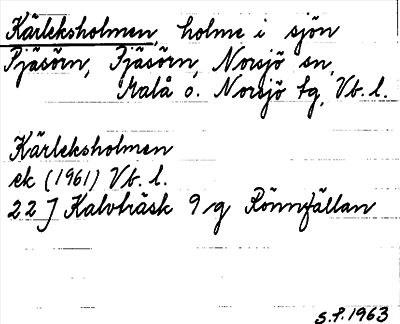 Kärleksholmen, holme i sjön
Pjäsörn, Pjäsörn, Norsjö sn,
Malå o. Norsjö tg, Vb. l.
Kärleksholmen
ek (1961) Vb. l.
22 J Kalvträsk 9 g Rönnfällan
S.P. 1963